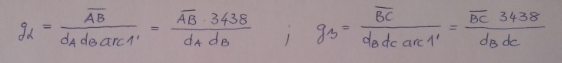 g₂ = \overline{AB} / (d_A d_B arc 1') = (\overline{AB} · 3438) / (d_A d_B) ; g_B = \overline{BC} / (d_B d_C arc 1') = (\overline{BC} 3438) / (d_B d_C)